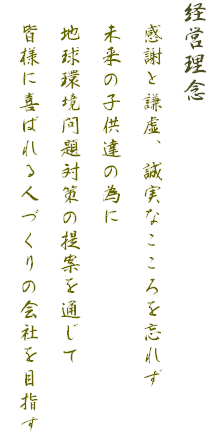 経営理念
感謝と謙虚、誠実なこころを忘れず
未来の子供達の為に
地球環境問題対策の提案を通じて
皆様に喜ばれる人づくりの会社を目指す